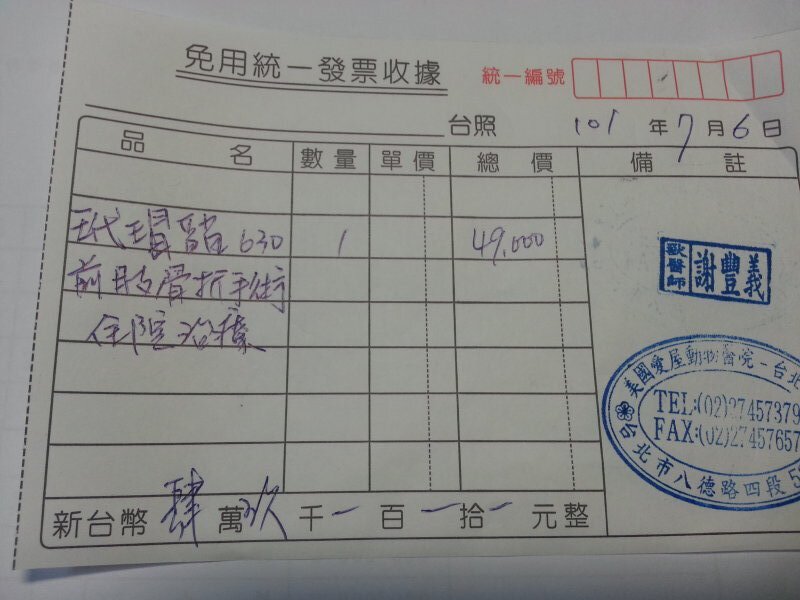 免用統一發票收據
統一編號
台照 101年7月6日
品名 數量 單價 總價 備註
玳瑁 630 1 49,000
前肢骨折手術
住院治療
獸醫師 謝豐義
美國愛屋動物醫院－台北
TEL:(02)27457379
FAX:(02)2745765
台北市八德路四段5
新台幣肆萬玖千－百－拾－元整